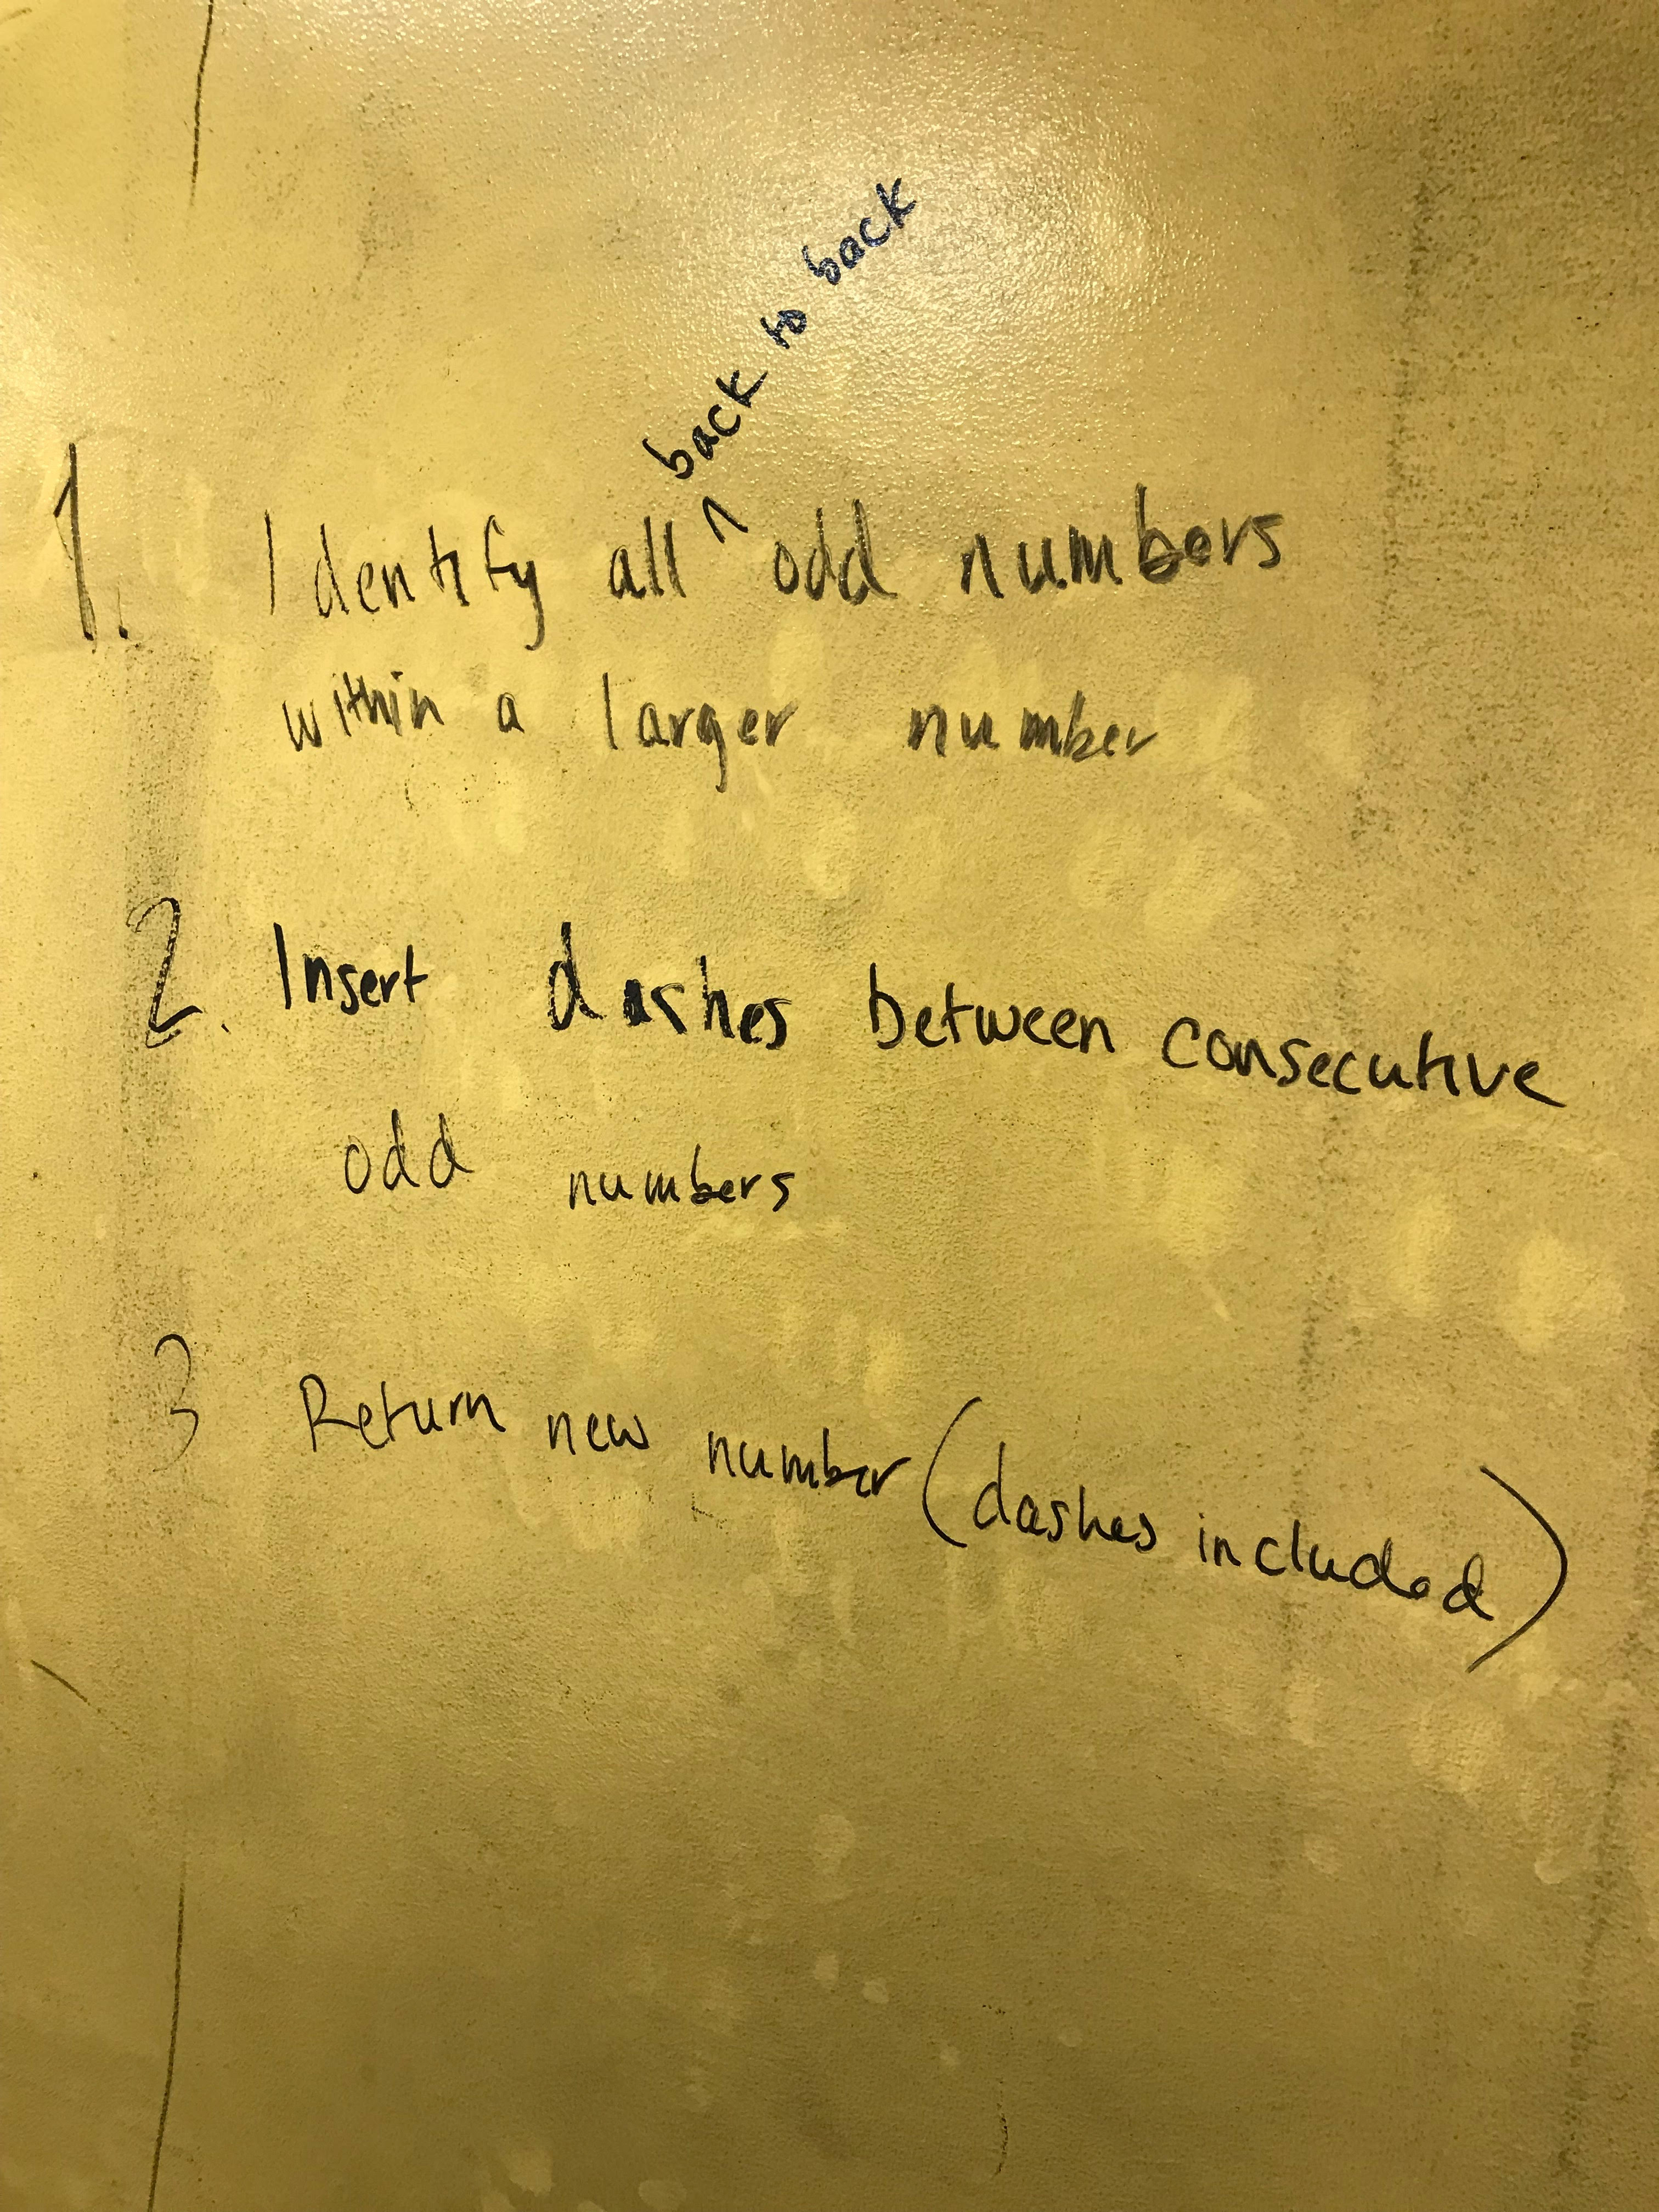 back to back
1. Identify all ^ odd numbers
within a larger number
2. Insert dashes between consecutive
odd numbers
3 Return new number (dashes included)